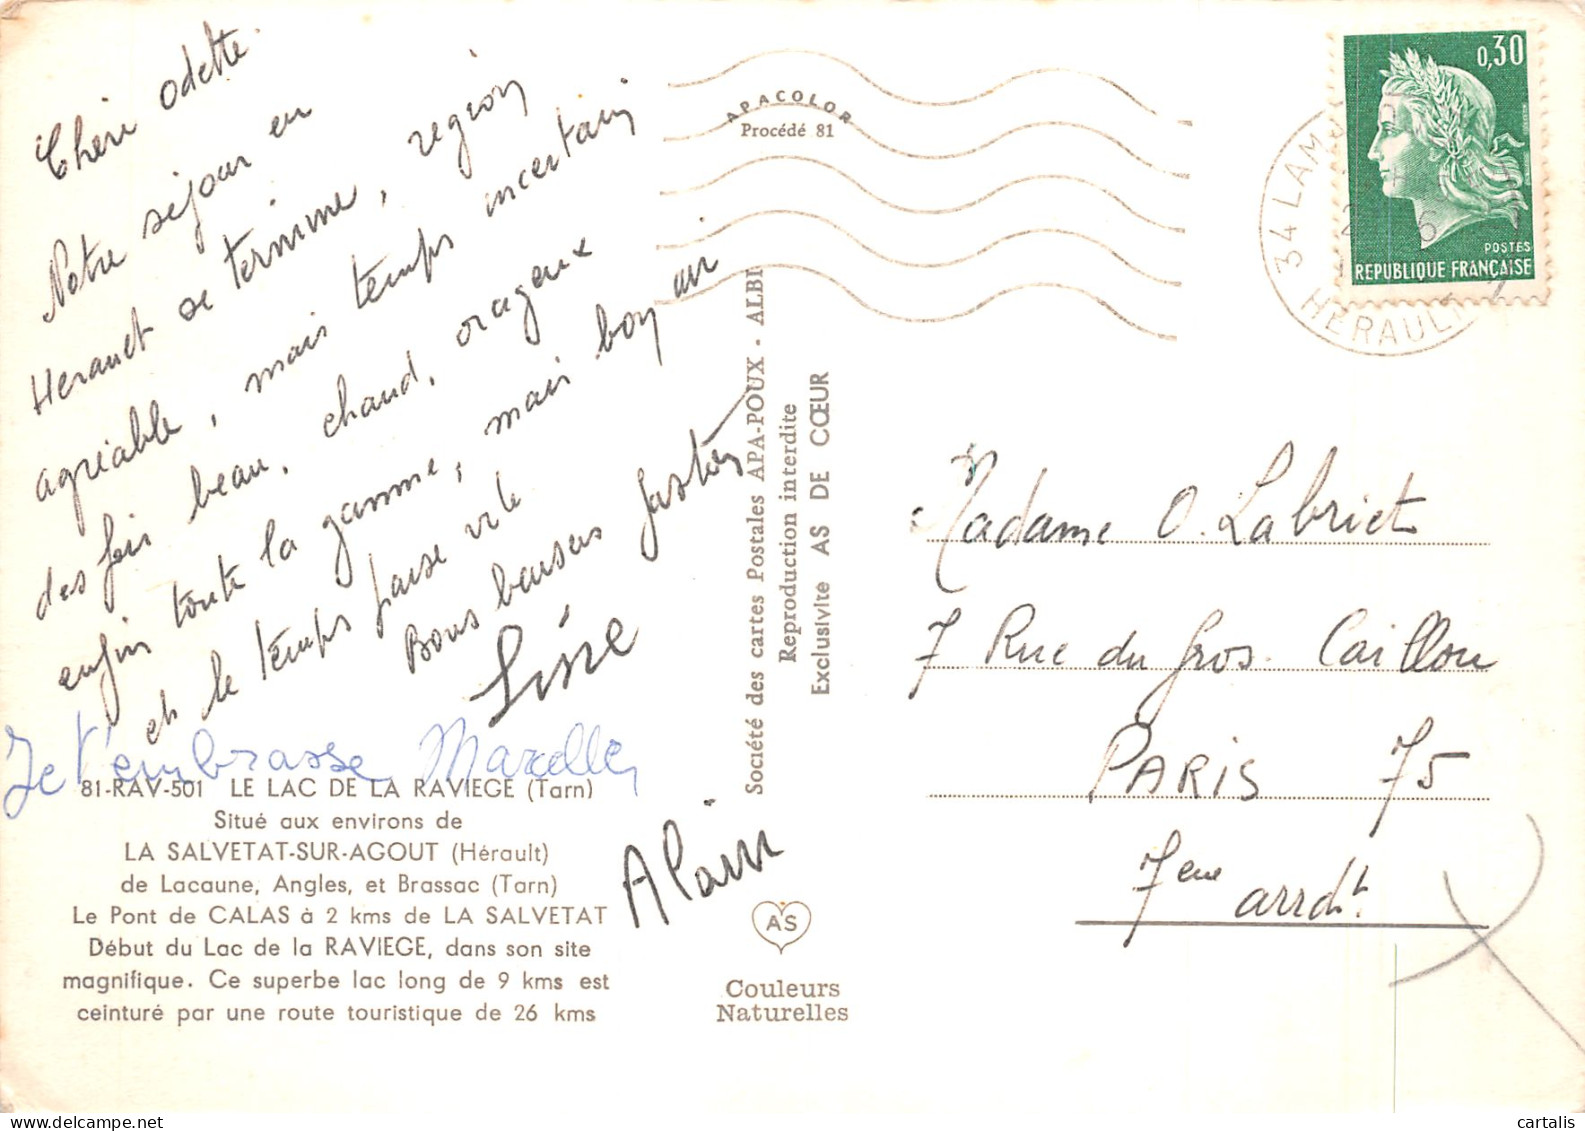 Chère odette.
Notre séjour en
Herault se termine, région
agréable, mais temps incertain
des fois beau, chaud, orageux
enfin toute la gamme, mais bon air
et le temps passe vite
Bons baisers
Line
Je t'embrasse Marcelle
Alain
81-RAV-501 LE LAC DE LA RAVIEGE (Tarn)
Situé aux environs de
LA SALVETAT-SUR-AGOUT (Hérault)
de Lacaune, Angles, et Brassac (Tarn)
Le Pont de CALAS à 2 kms de LA SALVETAT
Début du Lac de la RAVIEGE, dans son site
magnifique. Ce superbe lac long de 9 kms est
ceinturé par une route touristique de 26 kms
APACOLOR
Procédé 81
Société des cartes Postales APA-POUX - ALBI
Reproduction interdite
Exclusivite AS DE CŒUR
AS
Couleurs
Naturelles
0,30
POSTES
REPUBLIQUE FRANÇAISE
34 LAM
HERAULT
Madame O. Labriet
7 Rue du Gros. Caillou
PARIS 75
7eme arrdt.
cartalis